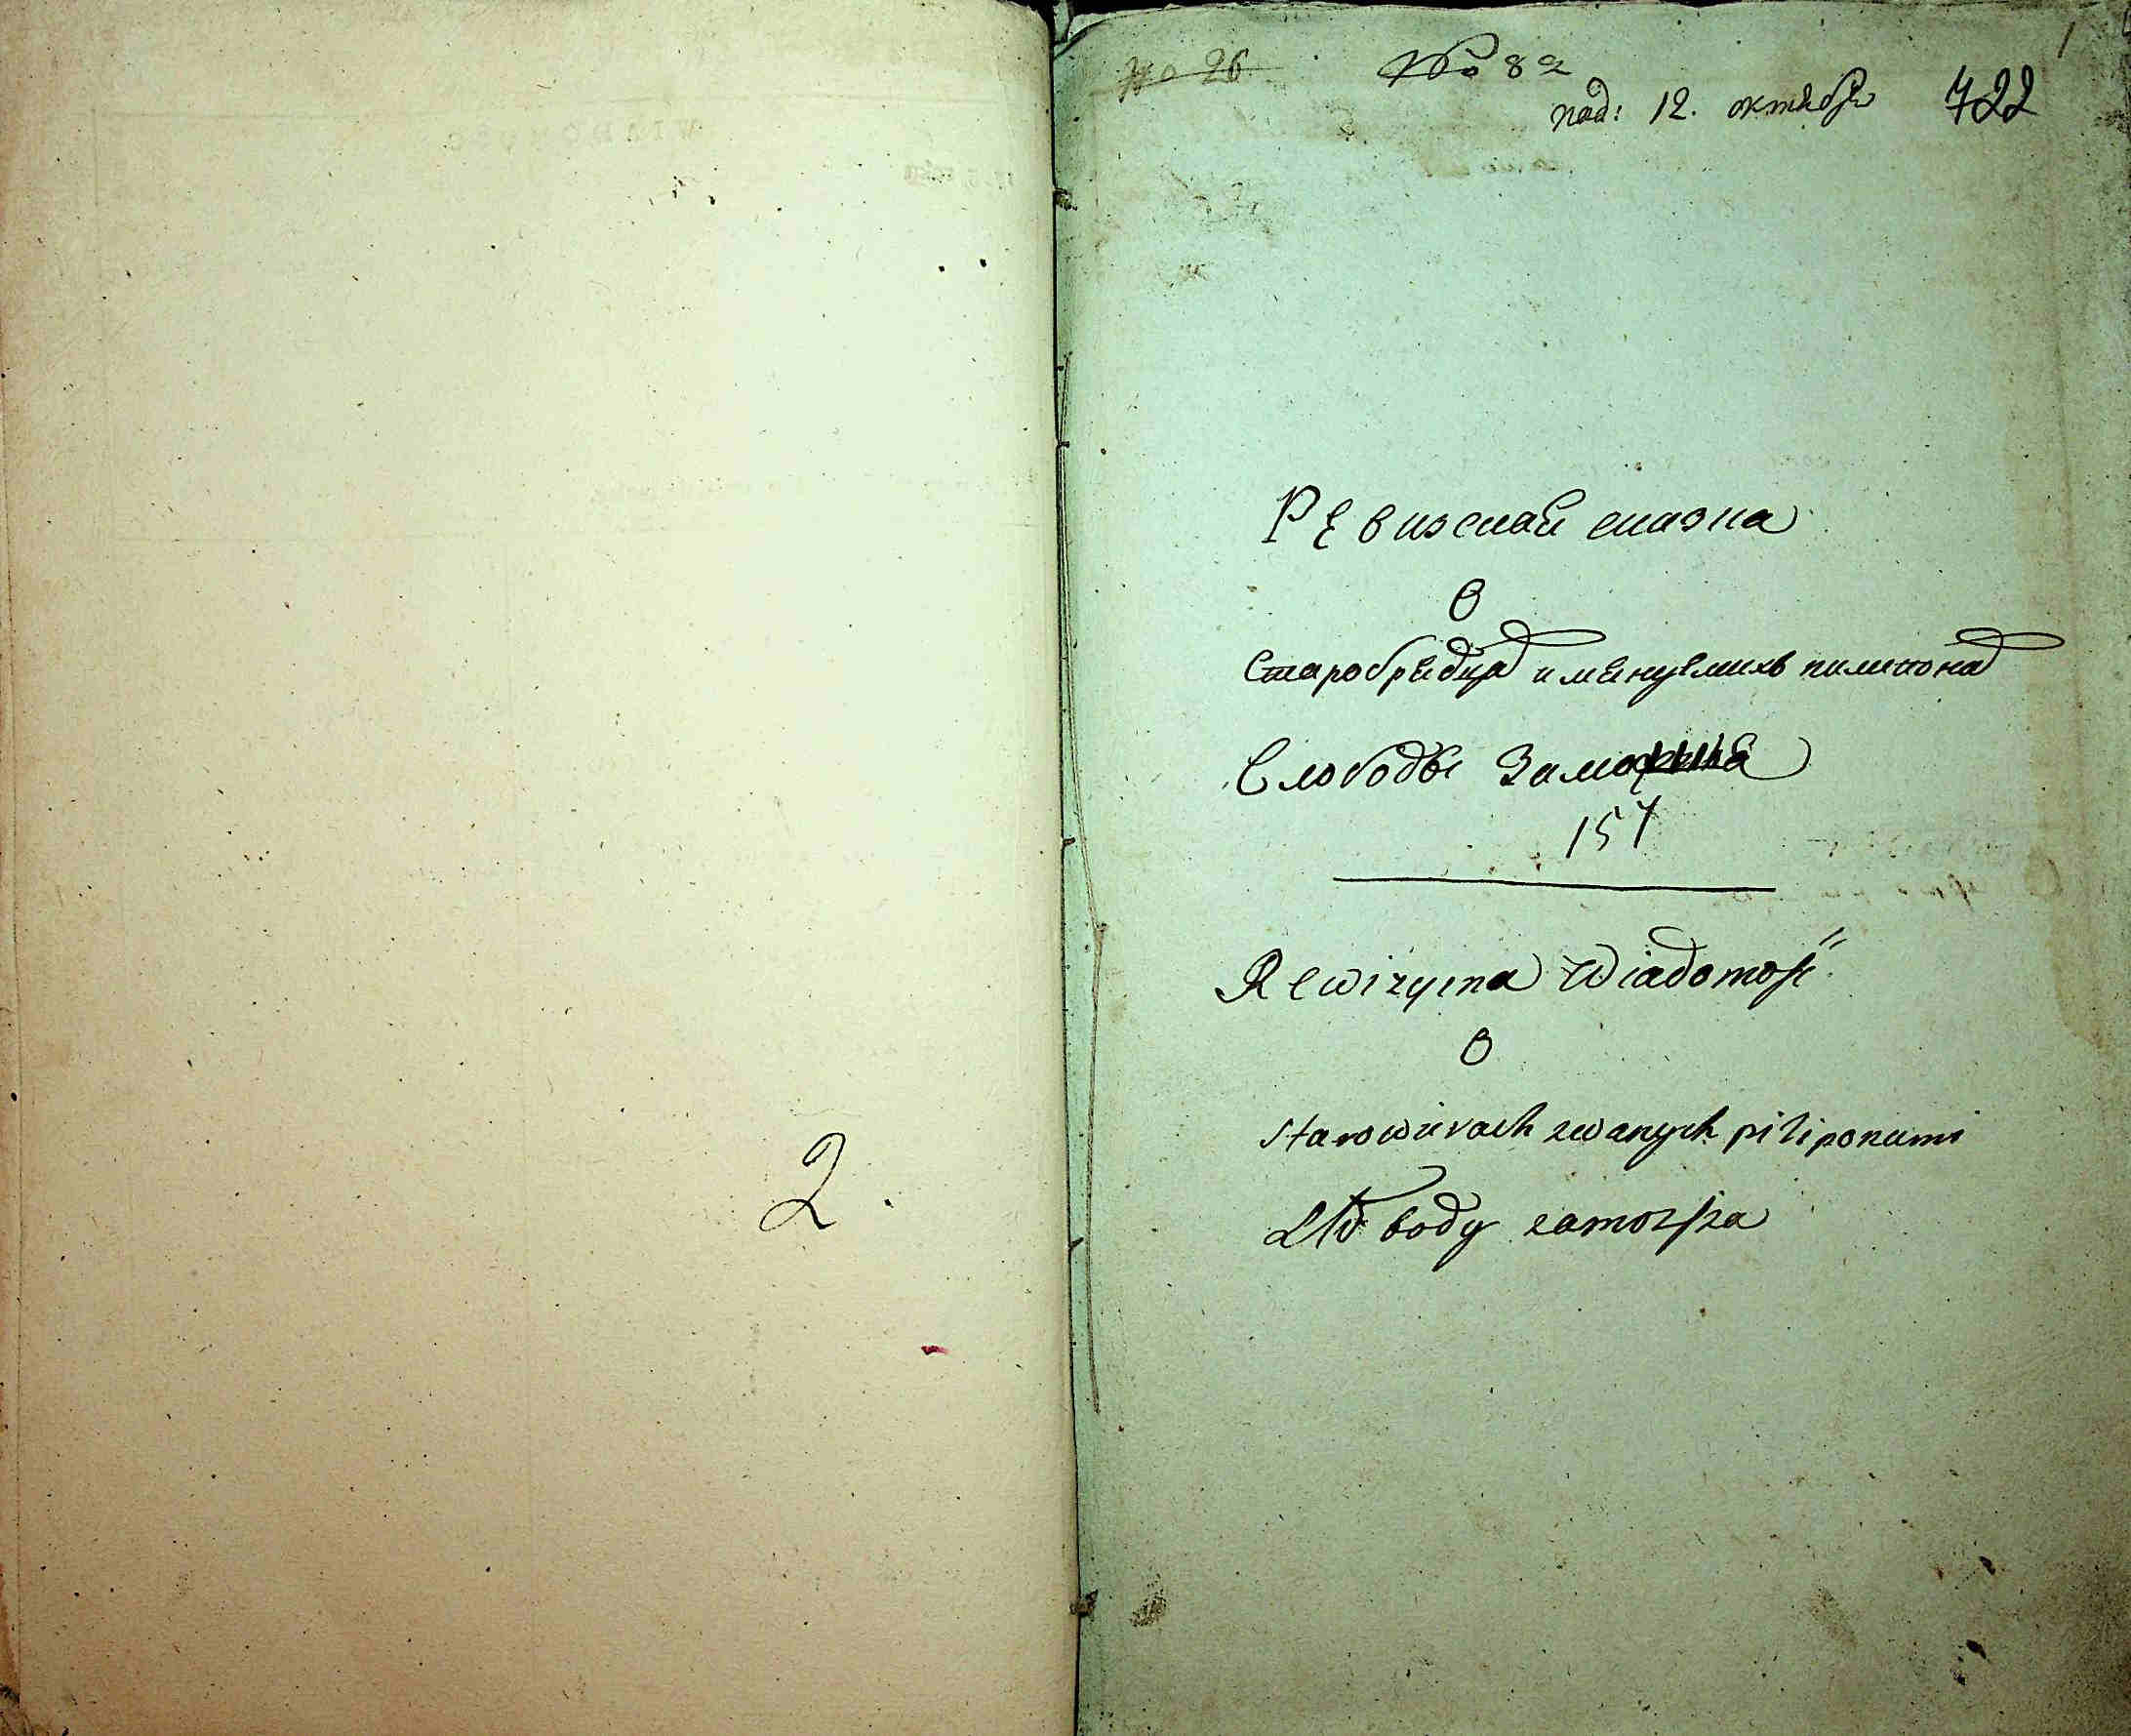 2.
1
No 26
No 82
под: 12. октября 722
Ревизская сказка
О
Старобрядцах именуемихъ пилипонах
Слободы
157
Rewizyina Wiadomość
O
starowierach zwanych piliponami
Słobody